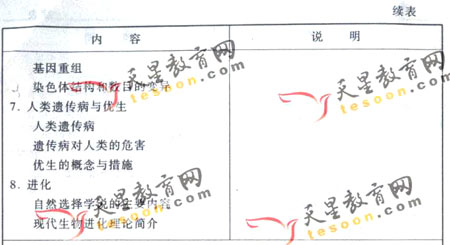 续表
内 容 说 明
基因重组
染色体结构和数目的变异
7. 人类遗传病与优生
人类遗传病
遗传病对人类的危害
优生的概念与措施
8. 进化
自然选择学说的主要内容
现代生物进化理论简介
天星教育网
tesoon.com
天星教育网
tesoon.com
天星教育网
tesoon.com
天星教育网
tesoon.com